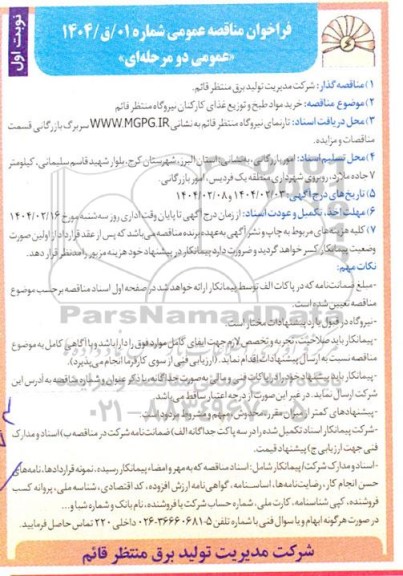 نوبت اول
فراخوان مناقصه عمومی شماره ۰۱/ق/۱۴۰۴
«عمومی دو مرحله‌ای»
۱) مناقصه گذار: شرکت مدیریت تولید برق منتظر قائم.
۲) موضوع مناقصه: خرید مواد طبخ و توزیع غذای کارکنان نیروگاه منتظر قائم
۳) محل دریافت اسناد: تارنمای نیروگاه منتظر قائم به نشانی WWW.MGPG.IR سربرگ بازرگانی قسمت
مناقصات و مزایده.
۴) محل تسلیم اسناد: امور بازرگانی، به نشانی: استان البرز، شهرستان کرج، بلوار شهید قاسم سلیمانی، کیلومتر
۷ جاده ملارد، روبروی شهرداری منطقه یک فردیس، امور بازرگانی.
۵) تاریخ‌های درج آگهی: ۱۴۰۴/۰۲/۰۳ و ۱۴۰۴/۰۲/۰۸
۶) مهلت اخذ، تکمیل و عودت اسناد: از زمان درج آگهی تا پایان وقت اداری روز سه‌شنبه مورخ ۱۴۰۴/۰۲/۱۶
۷) کلیه هزینه‌های مربوط به چاپ و نشر آگهی به عهده برنده مناقصه می‌باشد که پس از عقد قرارداد از اولین صورت
وضعیت پیمانکار کسر خواهد گردید و ضرورت دارد پیمانکار در پیشنهاد خود هزینه مزبور را مدنظر قرار دهد.
نکات مهم:
-مبلغ ضمانت‌نامه که در پاکات الف توسط پیمانکار ارائه خواهد شد در صفحه اول اسناد مناقصه برحسب موضوع
مناقصه تعیین شده است.
-نیروگاه در قبول یا رد پیشنهادات مختار است.
-پیمانکار باید صلاحیت، تجربه و تخصص لازم جهت ایفای کامل موارد فوق را دارا باشد و با آگاهی کامل به موضوع
مناقصه نسبت به ارسال پیشنهادات اقدام نماید. (ارزیابی فنی از سوی کارفرما انجام می‌پذیرد).
-پیمانکار باید پیشنهاد خود را در پاکات فنی و مالی به صورت جداگانه با ذکر عنوان و شماره مناقصه به آدرس این
شرکت ارسال نماید. در غیر این صورت از درجه اعتبار ساقط می‌باشد.
-پیشنهادهای کمتر از میزان مقرر، مخدوش، مبهم و مشروط مردود است.
-شرکت پیمانکار اسناد تکمیل شده را در سه پاکت جداگانه الف) ضمانت‌نامه شرکت در مناقصه ب) اسناد و مدارک
فنی جهت ارزیابی ج) پیشنهاد قیمت.
-اسناد و مدارک شرکت/پیمانکار شامل: اسناد مناقصه که به مهر و امضاء پیمانکار رسیده، نمونه قراردادها، نامه‌های
حسن انجام کار، رضایت‌نامه‌ها، اساسنامه، گواهی‌نامه ارزش افزوده، کد اقتصادی، شناسه ملی، پروانه کسب
فروشنده، کپی شناسنامه، کارت ملی، شماره حساب شرکت یا فروشنده، نام بانک و شماره شبا و...
در صورت هرگونه ابهام و یا سوال فنی با شماره تلفن ۵-۰۲۶۳۶۶۶۰۶۸۱ داخلی ۲۲۰ تماس حاصل فرمایید.
شرکت مدیریت تولید برق منتظر قائم
ParsNamadData